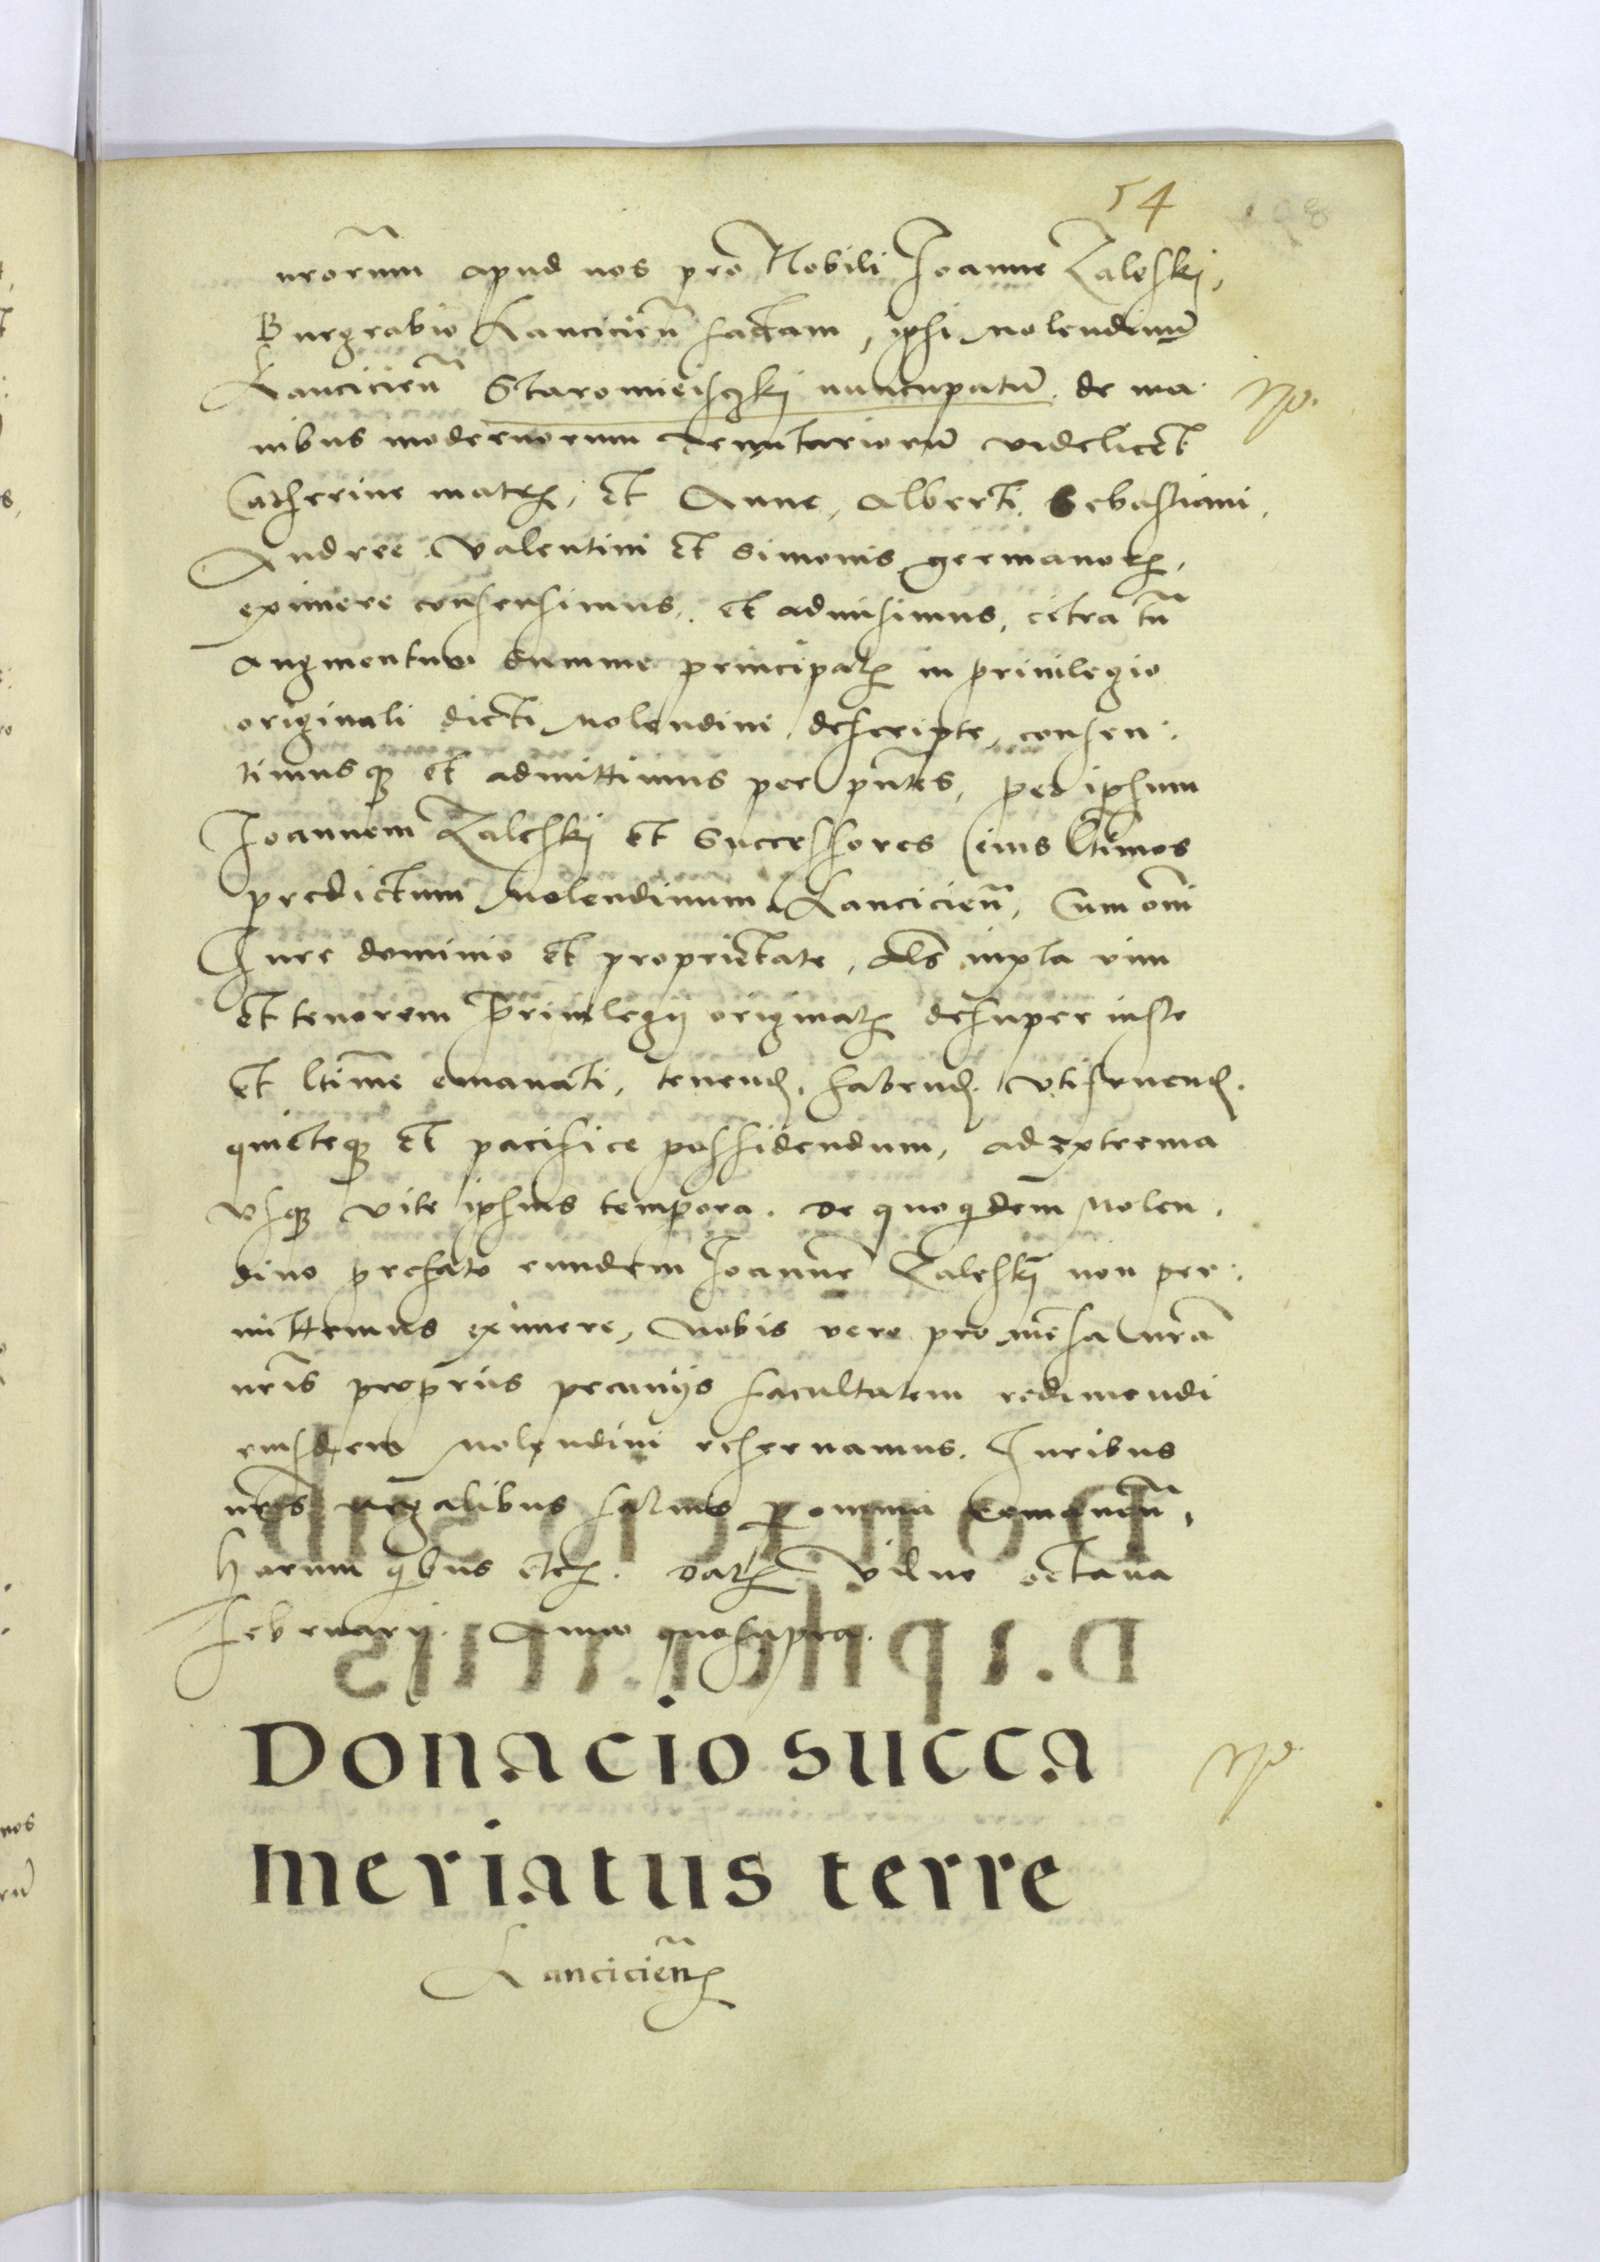 54
nrorum apud nos pro Nobili Joanne Zaleskj,
Burgrabio Lancicien̄ factam, ipsi Molendinū
Lancicien̄ Staromieisczkj nuncupatū de ma
nibus modernorum tenutariorū videlicet
Catherine matris, et Anne, Alberti, Sebastiani,
Andree, Valentini et Simonis germanorꝫ,
eximere consensimus, et admisimus, citra tn̄
augmentum summe principalꝫ in privilegio
originali dicti Molendini descripte, consen
timusqꝫ et admittimus per pn̄tes, per ipsum
Joannem Zaleskj et Successores eius ltimos
predictum Molendinum Lancicien̄, Cum omī
Jure dominio et proprietate, als iuxta vim
et tenorem Privilegij originalꝫ desuper iuste
et ltime emanati, tenend, habend, utifruend,
quieteqꝫ et pacifice possidendum, ad extrema
usqꝫ vite ipsius tempora. De quoqdem Molen
dino prefato eundem Joannē Zaleskj non per
mittemus eximere, Nobis vero pro mensa nr̄a
nr̄is proprijs pecunijs facultatem redimendi
eiusdem Molendini reservamus. Juribus
nr̄is regalibus salvis per omnia remanen̄,
Harum qibus etcꝫ. Datꝫ Vilne octava
Februarij. Anno quo supra.
Donacio succa
meriatus terre
Lancicien̄ꝫ